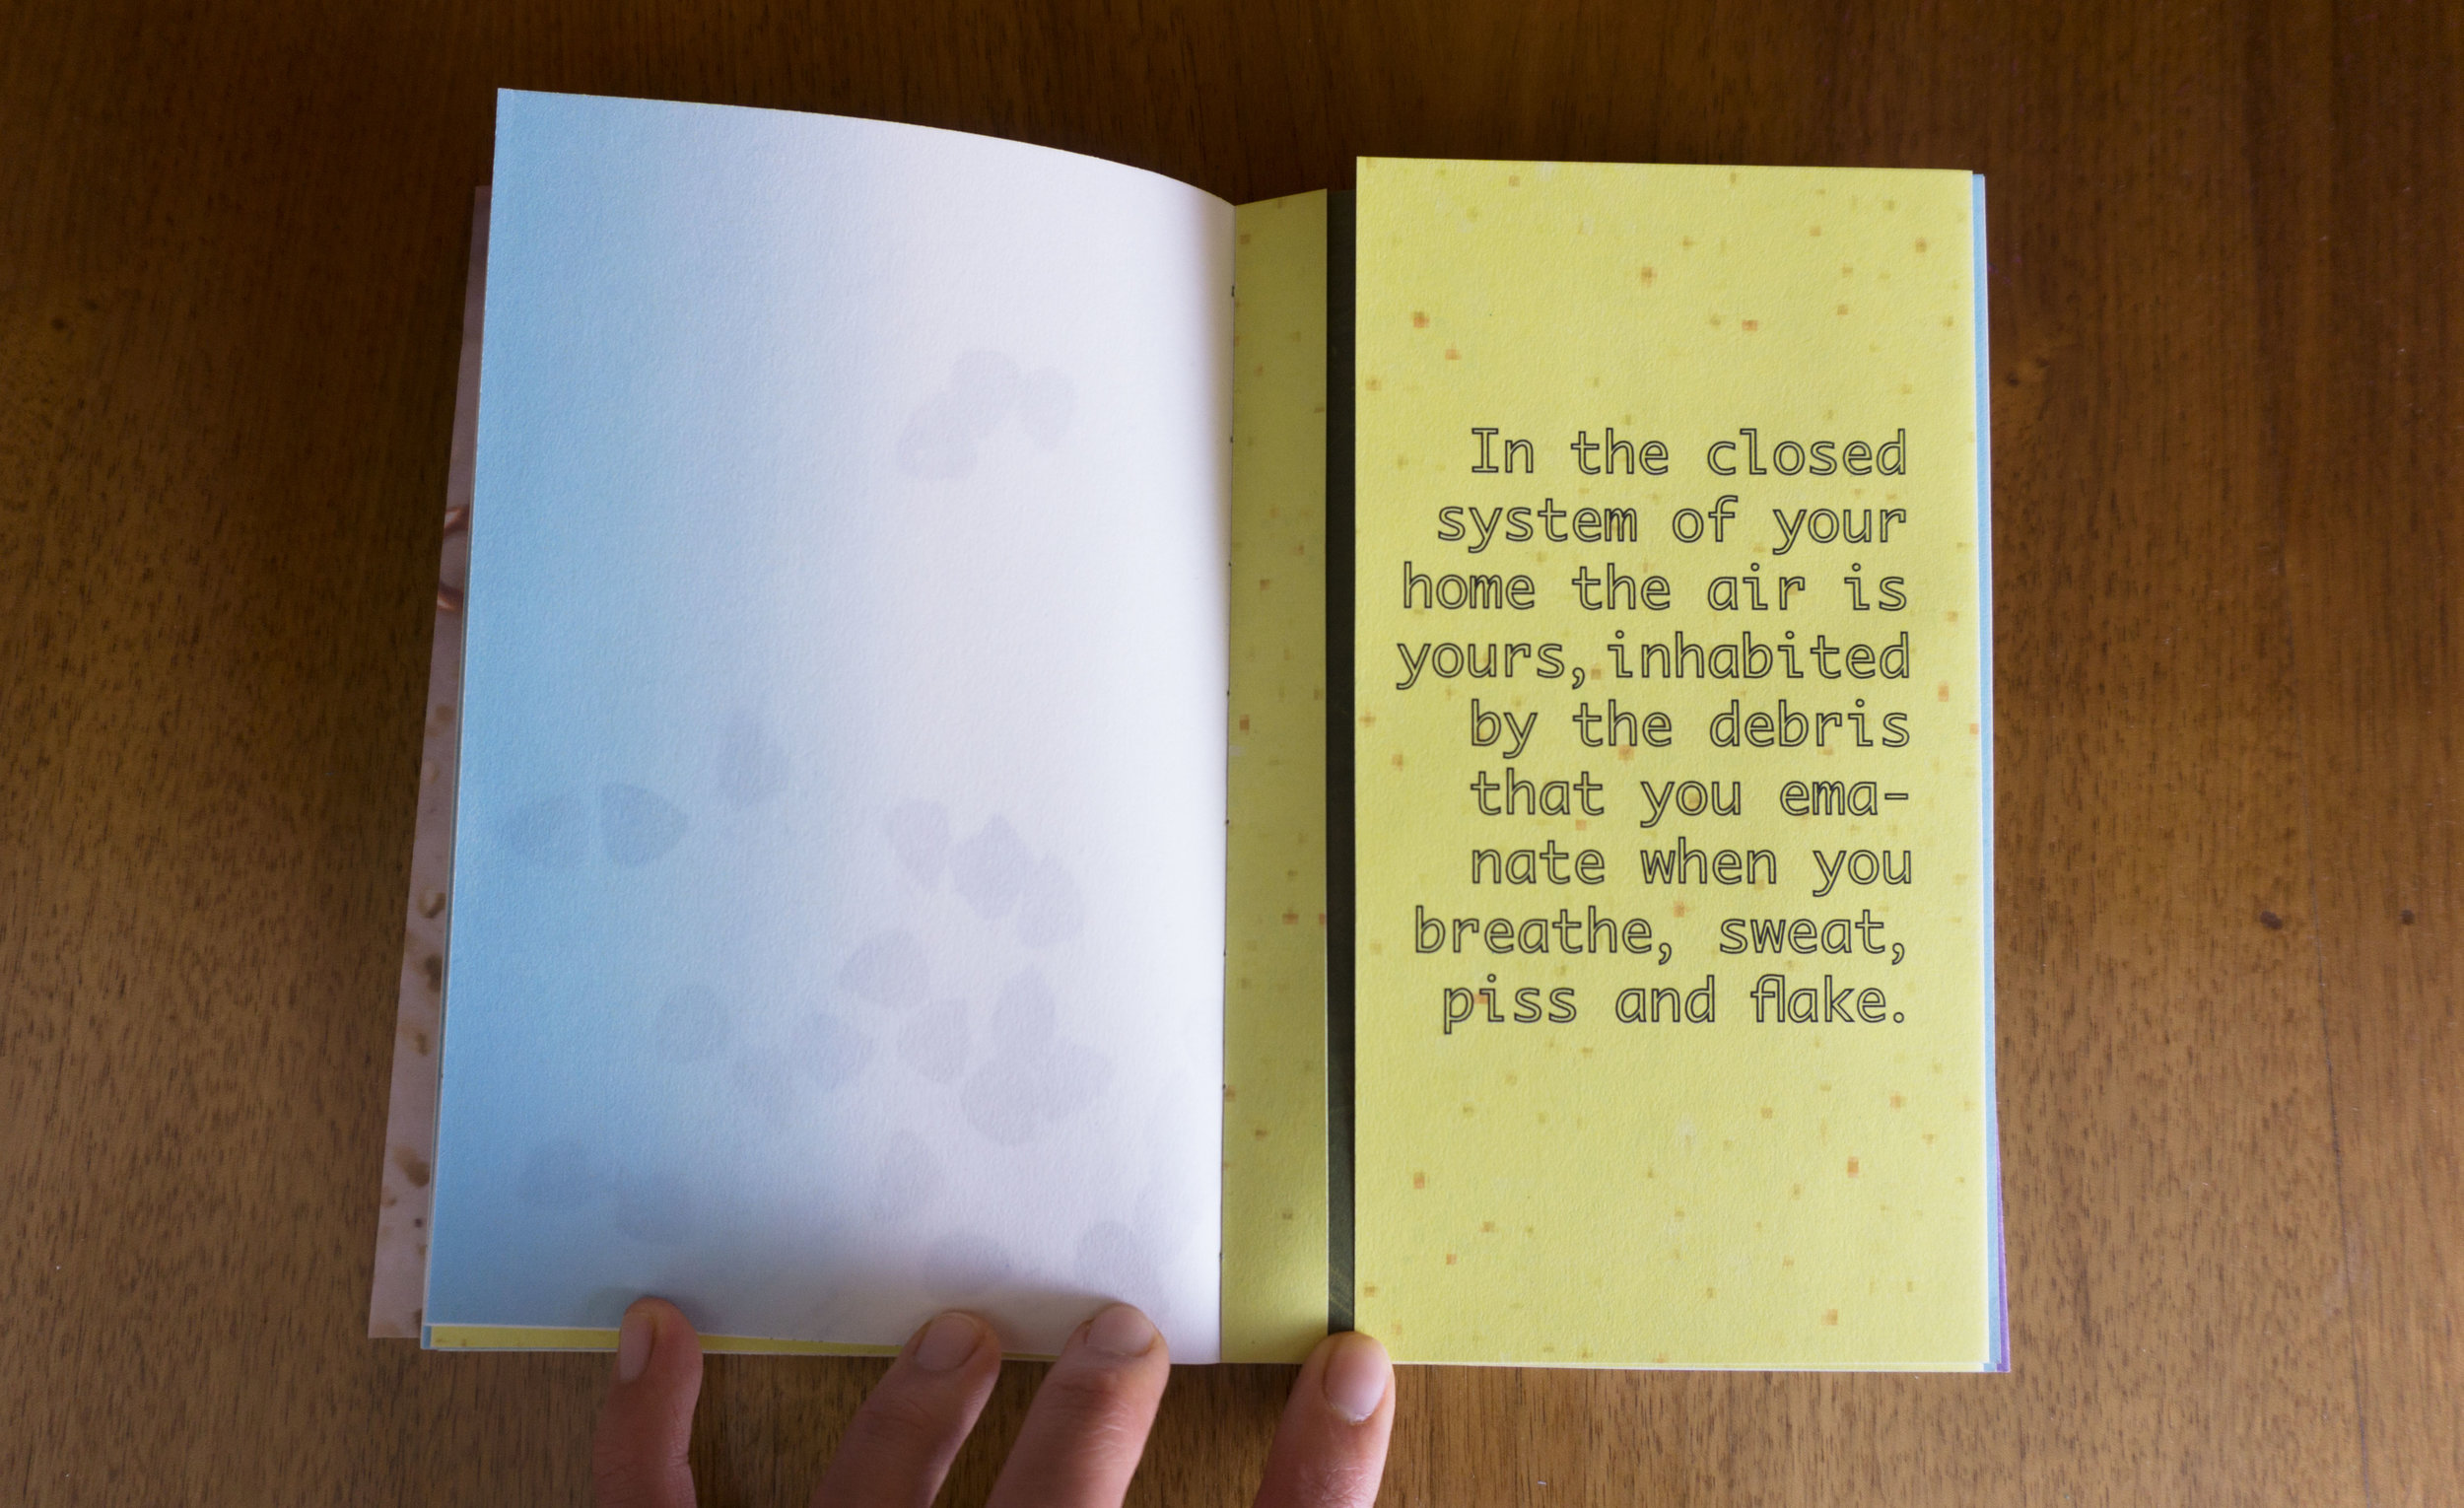 In the closed
system of your
home the air is
yours, inhabited
by the debris
that you ema-
nate when you
breathe, sweat,
piss and flake.